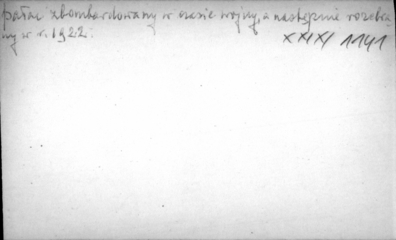 pałac zbombardowany w czasie wojny, a następnie rozebra
ny w r. 1922.
XXIXI 1141